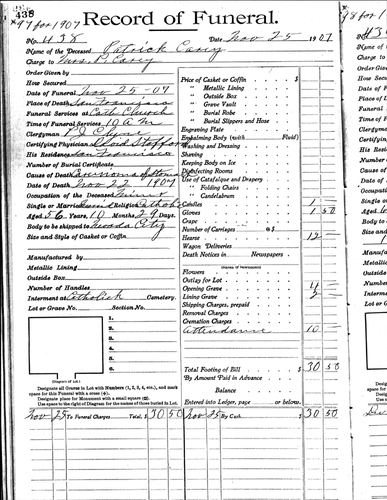 438
*97 for 1907
Record of Funeral.
No. 438 Date Nov 25 1907
Name of the Deceased Patrick Carey
Charge to Mrs. P. Carey
Order Given by
How Secured
Date of Funeral Nov 25-07
Place of Death San Francisco
Funeral Services at Cath Church
Time of Funeral Services 10 A M
Clergyman P J Clyne
Certifying Physician
His Residence San Francisco
Number of Burial Certificate
Cause of Death of Stomach
Date of Death Nov 22 1907
Occupation of the Deceased Miner
Single or Married Religion Catholic
Aged 56 Years, 10 Months 29 Days.
Body to be shipped to Nevada City
Size and Style of Casket or Coffin
Manufactured by
Metallic Lining
Outside Box
Number of Handles
Interment at Catholick Cemetery.
Lot or Grave No. Section No.
1.
2.
3.
4.
5.
6.
(Diagram of Lot)
Designate all Graves in Lot with Numbers (1, 2, 3, 4, etc.), and mark
space for this Funeral with a cross (+).
Designate place for Monument with a small square (□).
Use space to right of Diagram for names of those buried in Lot.
Price of Casket or Coffin $
" Metallic Lining
" Outside Box
" Grave Vault
" Burial Robe
" Burial Slippers and Hose
Engraving Plate
Embalming Body (with Fluid)
Washing and Dressing
Shaving
Keeping Body on Ice
Disinfecting Rooms
Use of Catafalque and Drapery
" Folding Chairs
" Candelabrum
Candles 1
Gloves 1 50
Crape
Number of Carriages @ $
Hearse 12
Wagon Deliveries
Death Notices in Newspapers
(Names of Newspapers)
Flowers
Outlay for Lot
Opening Grave 4
Lining Grave 2
Shipping Charges, prepaid
Removal Charges
Cremation Charges
Attendance 10
Total Footing of Bill $ 30 50
By Amount Paid in Advance
Balance
Entered into Ledger, page or below.
Nov 25 To Funeral Charges Total, $ 30 50 Nov 25 By Cash $ 30 50